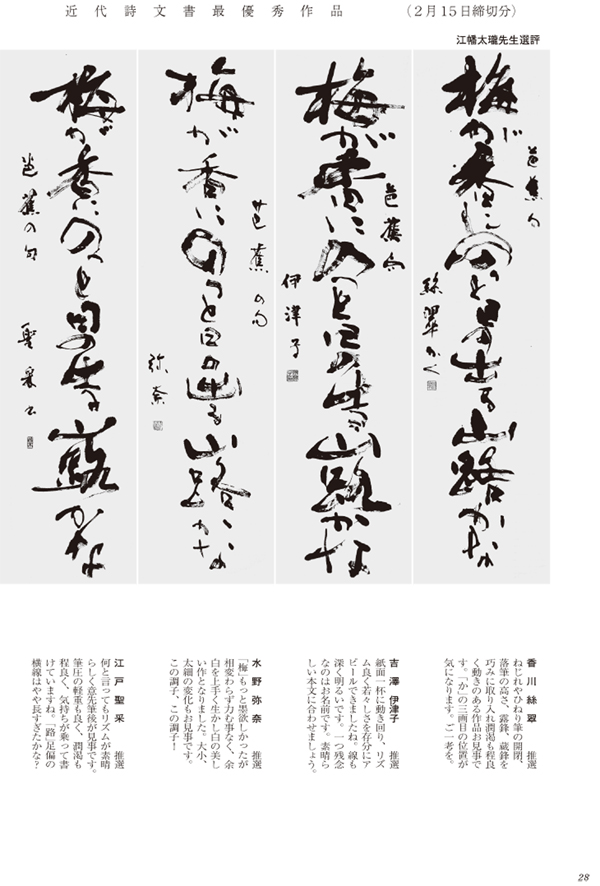 近代詩文書最優秀作品 (2月15日締切分)
江幡太瓏先生選評
梅が香にのっと日の出る山路かな
芭蕉句
絲翠かく
梅が香にのっと日の出る山路かな
芭蕉句
伊津子
梅が香にのっと日の出る山路かな
芭蕉の句
弥奈
梅が香にのっと日の出る山路かな
芭蕉の句
聖采かく
香川絲翠 推選
ねじれやひねり筆の開閉、
落筆の高さ、露鋒、蔵鋒を
巧みに取り入れ潤渇も程良
く動きのある作品お見事で
す。「か」の三画目の位置が
気になります。ご一考を。
吉澤伊津子 推選
紙面一杯に動き回り、リズ
ム良く若々しさを存分にア
ピールできましたね。線も
深く明るいです。一つ残念
なのはお名前です。素晴ら
しい本文に合わせましょう。
水野弥奈 推選
「梅」もっと墨欲しかったが
相変わらず力む事なく、余
白を上手く生かし白の美し
い作となりました。大小、
太細の変化もお見事です。
この調子、この調子!
江戸聖采 推選
何と言ってもリズムが素晴
らしく意先筆後が見事です。
筆圧の軽重も良く、潤渇も
程良く、気持ちが乗って書
けていますね。「路」足偏の
横線はやや長すぎるかな?
28